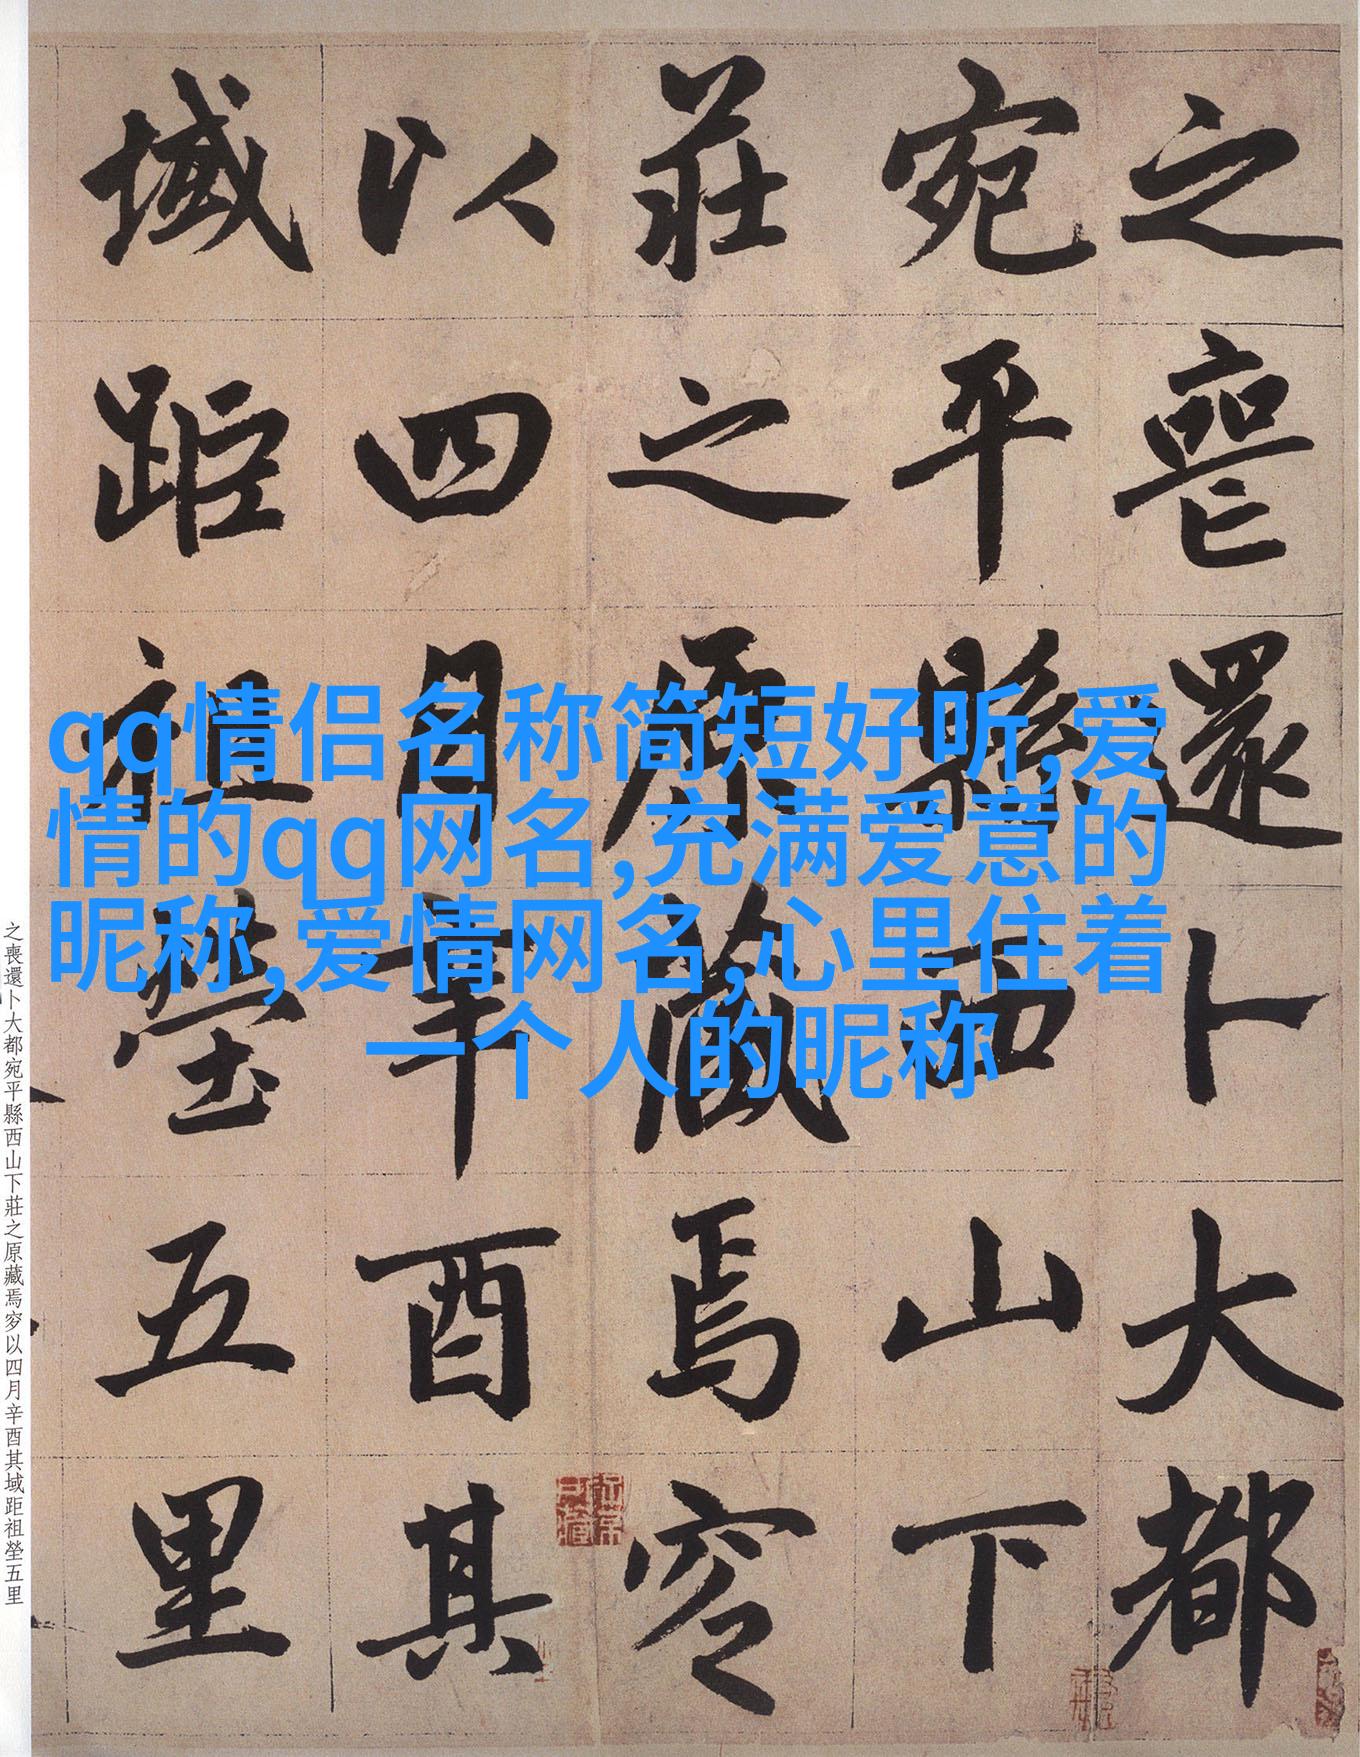 之喪還卜大都
宛平縣西山下
莊之原藏焉穸
以四月辛酉其
域距祖塋五里
qq情侣名称简短好听,爱
情的qq网名,充满爱意的
昵称,爱情网名,心里住着
一个人的昵称
之喪還卜大都宛平縣西山下莊之原藏焉穸以四月辛酉其域距祖塋五里